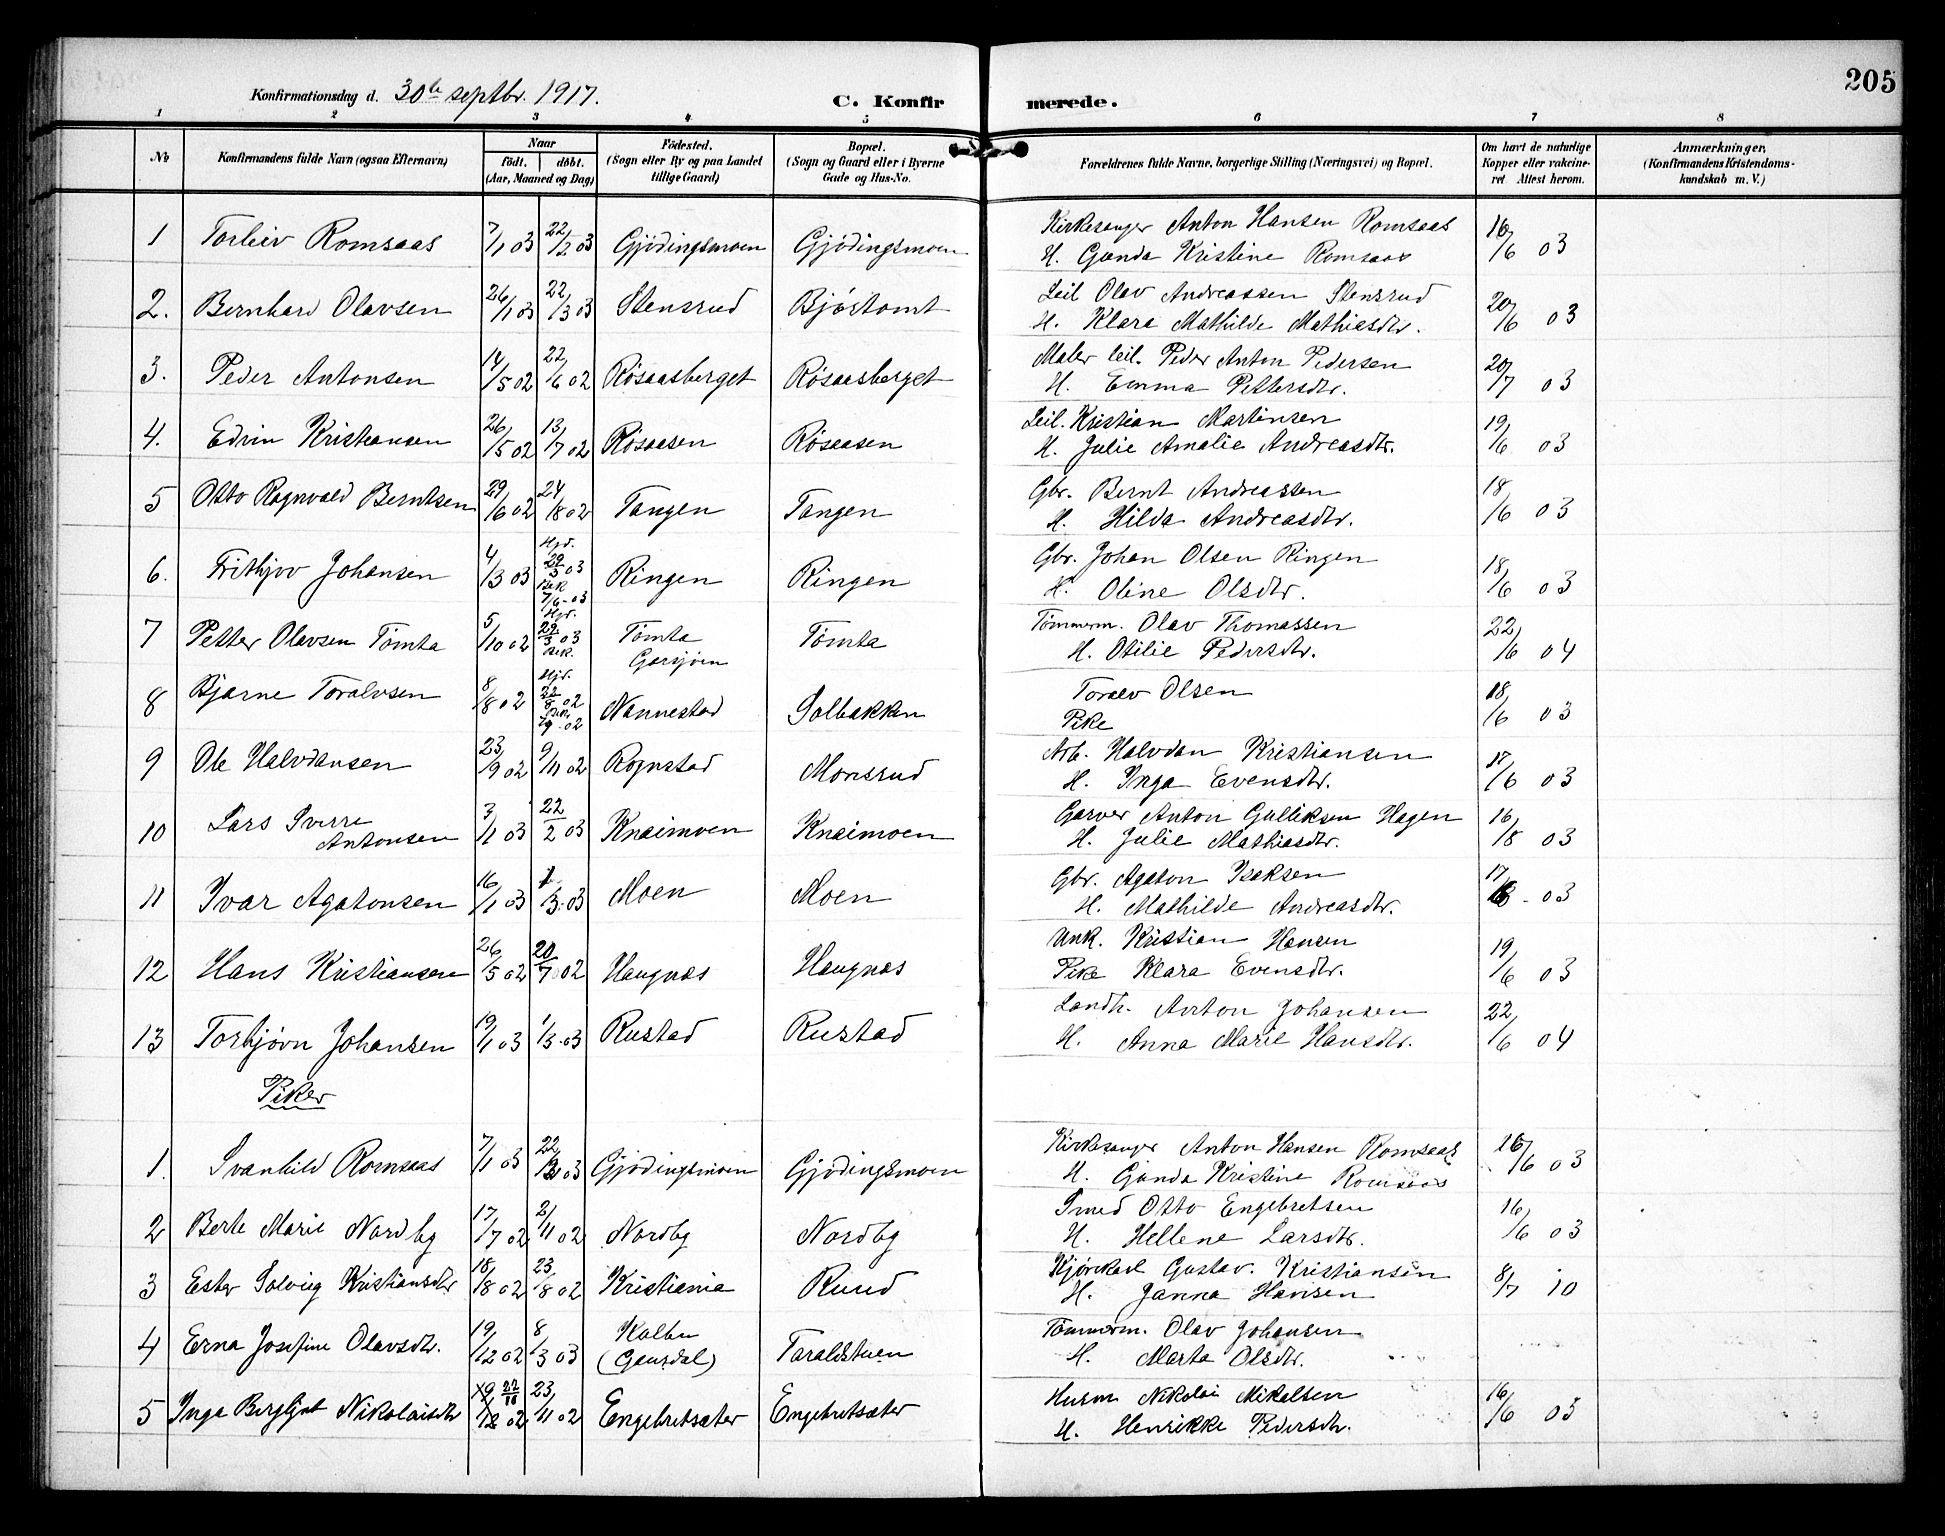 205
Konfirmationsdag d. 30te septbr. 1917. C. Konfir merede.
1 2 3 4 5 6 7 8
No Konfirmandens fulde Navn (ogsaa Efternavn) Naar födt. döbt. (Aar, Maaned og Dag) Födested. (Sogn eller By og paa Landet tillige Gaard) Bopæl. (Sogn og Gaard eller i Byerne Gade og Hus-No. Forældrenes fulde Navne, borgerlige Stilling (Næringsvei) og Bopæl. Om havt de naturlige Kopper eller vakcineret Attest herom. Anmærkninger, (Konfirmandens Kristendomskundskab m. V.)
1 Torleiv Romsaas 7/1 03 22/2 03 Gjödingsmoen Gjödingsmoen Kirkesanger Anton Hansen Romsaas 16/6 03
H. Gunda Kristine Romsaas
2. Bernhard Olavsen 26/1 03 22/3 03 Stensrud Bjórtomt Leil Olav Andreassen Stensrud 20/6 03
H. Klara Mathilde Mathiasdtr.
3. Peder Antonsen 14/5 02 22/6 02 Rösaasberget Rösaasberget Maler leil. Peder Anton Pedersen 20/7 03
H. Emma Pettersdtr.
4. Edvin Kristiansen 26/5 02 13/7 02 Rösaasen Rösaasen Leil. Kristian Martinsen 19/6 03
H. Julie Amalie Andreasdtr.
5 Otto Ragnvald Berntsen 29/6 02 24/8 02 Tangen Tangen Gbr. Bernt Andreassen 18/6 03
H. Hilda Andreasdtr.
6. Frithjov Johansen 4/3 03 Hjd. 29/3 03 Bek 7/6-03 Ringen Ringen Gbr. Johan Olsen Ringen 18/6 03
H. Oline Olsdtr.
7 Petter Olavsen Tömta 5/10 02 Hjd. 29/3 03 bek. Tömta Garsjöen Tömta Tömmerm. Olav Thomassen 22/6 04
H. Otilie Pedersdtr.
8 Bjarne Toralvsen 8/8 02 Hjd. 22/8 02 Nannestad Solbakken Toralv Olsen 18/6 03
Pike
9 Ole Halvdansen 23/9 02 9/11 02 Rognstad Monsrud Arb. Halvdan Kristiansen 17/6 03
H. Inga Evensdtr.
10 Lars Sverre Antonsen 3/1 03 22/2 03 Knæimoen Knæimoen Garver Anton Gulliksen Hagen 16/8 03
H. Julie Mathiasdtr.
11 Ivar Agatonsen 16/1 03 1/3-03 Moen Moen Gbr. Agaton Isaksen 17/6-03
H. Mathilde Andreasdtr.
12 Hans Kristiansen 26/5 02 20/7 02 Haugnæs Haugnæs Unk. Kristian Hansen 19/6 03
Pike Klara Evensdtr.
13 Torbjörn Johansen 19/1 03 1/3-03 Rustad Rustad Landh. Anton Johansen 22/6 04
H. Anna Marie Hansdtr.
Piker
1. Svanhild Romsaas 7/1 03 22/2 03 Gjödingsmoen Gjödingsmoen Kirkesanger Anton Hansen Romsaas 16/6 03
H. Gunda Kristine Romsaas
2 Berte Marie Nordby 17/7 02 2/11 02 Nordby Nordby Smed Otto Engebretsen 16/6 03
H. Hellene Larsdtr.
3 Ester Solveig Kristiansdtr 18/8 02 23/8 02 Kristiania Ruud Kjörekarl Gustav. Kristiansen 8/7 10
H. Janna Hansen
4 Erna Josefine Olavsdtr. 19/12 02 8/3 03 Kolbu (Gausdal) Taraldstuen Tömmerm. Olav Johansen
H. Marta Olsdtr.
5 Inga Bergljot Nikolaisdtr 19/12 02 22/10 23/11 02 Engebretsæter Engebretsæter Husm Nikolai Mikalsen 16/6 03
H. Henrikke Pedersdtr.